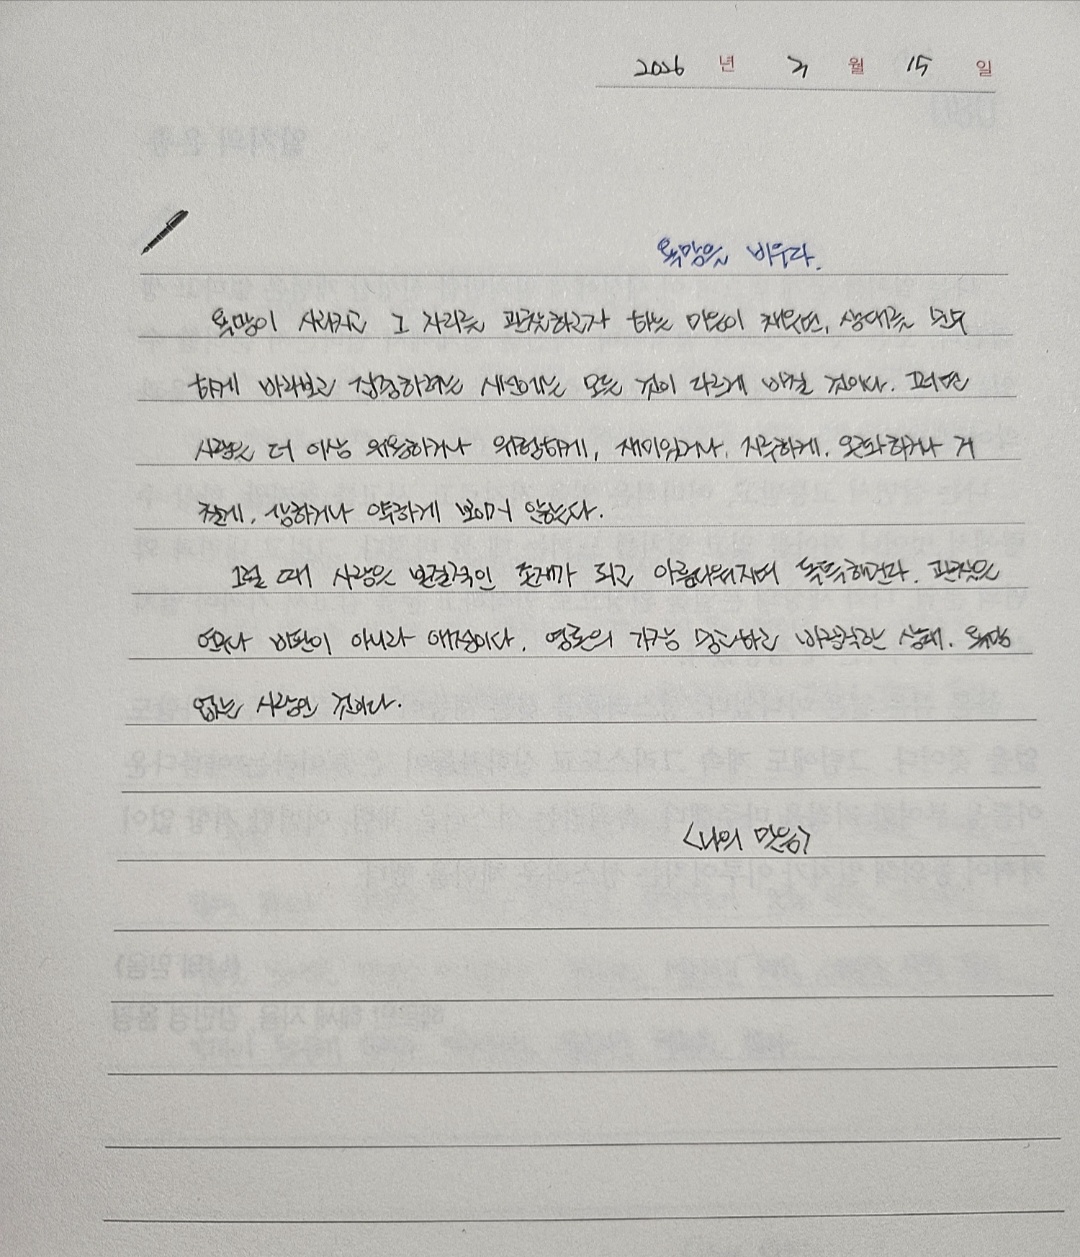 2026 년 3 월 15 일
욕망을 비우다.
욕망이 사라지고 그 자리를 관찰하고자 하는 마음이 채우면, 상대를 순수
하게 바라보고 집중하려는 세상에는 모든 것이 다르게 바뀔 것이다. 그러면
사람은 더 이상 유용하거나 위험하게, 재미있거나, 지루하게, 온화하거나 거
칠게, 강하거나 약하게 보이지 않는다.
그럴 때 사람은 본질적인 존재가 되고 아름다워지며 독특해진다. 관찰은
연구나 비판이 아니라 애정이다. 영혼의 가장 숭고하고 바람직한 상태. 욕망
없는 사랑인 것이다.
<나의 믿음>